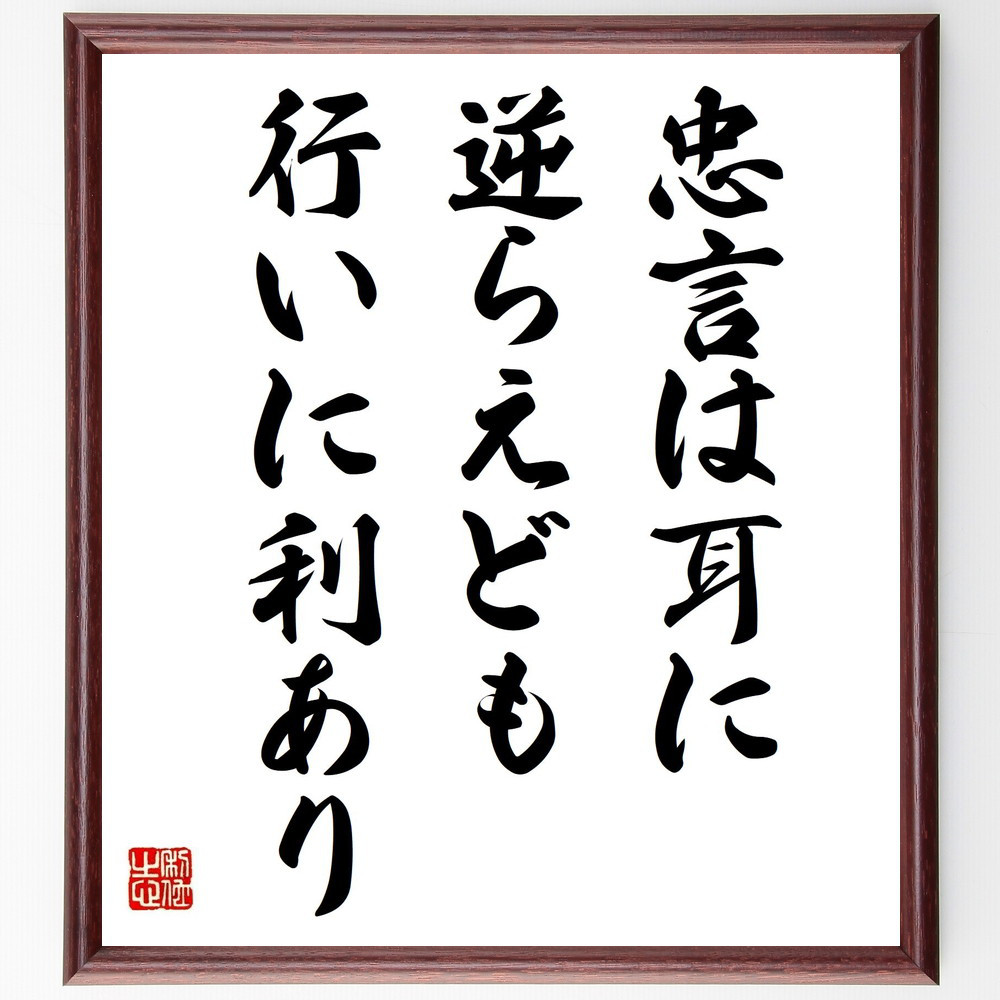 忠言は耳に
逆らえども
行いに利あり